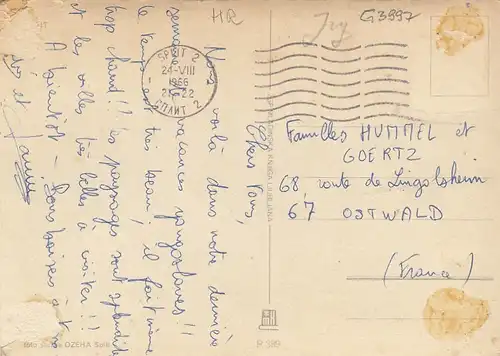 HR
Jvy
G3997
SPLIT 2
24-VIII
1966
21-22
СПЛИТ 2
Chers Vous,
Nous voilà dans notre dernière
semaine de vacances yougoslaves!!
le temps est très beau, il fait même
trop chaud!! les paysages sont splendides
et les villes très belles à visiter!!
A bientôt – Bons baisers à
Familles HUMMEL et
GOERTZ
68, route de Lingolsheim
67 OSTWALD
(France)
KNJIGA LJUBLJANA
DZEHA Split